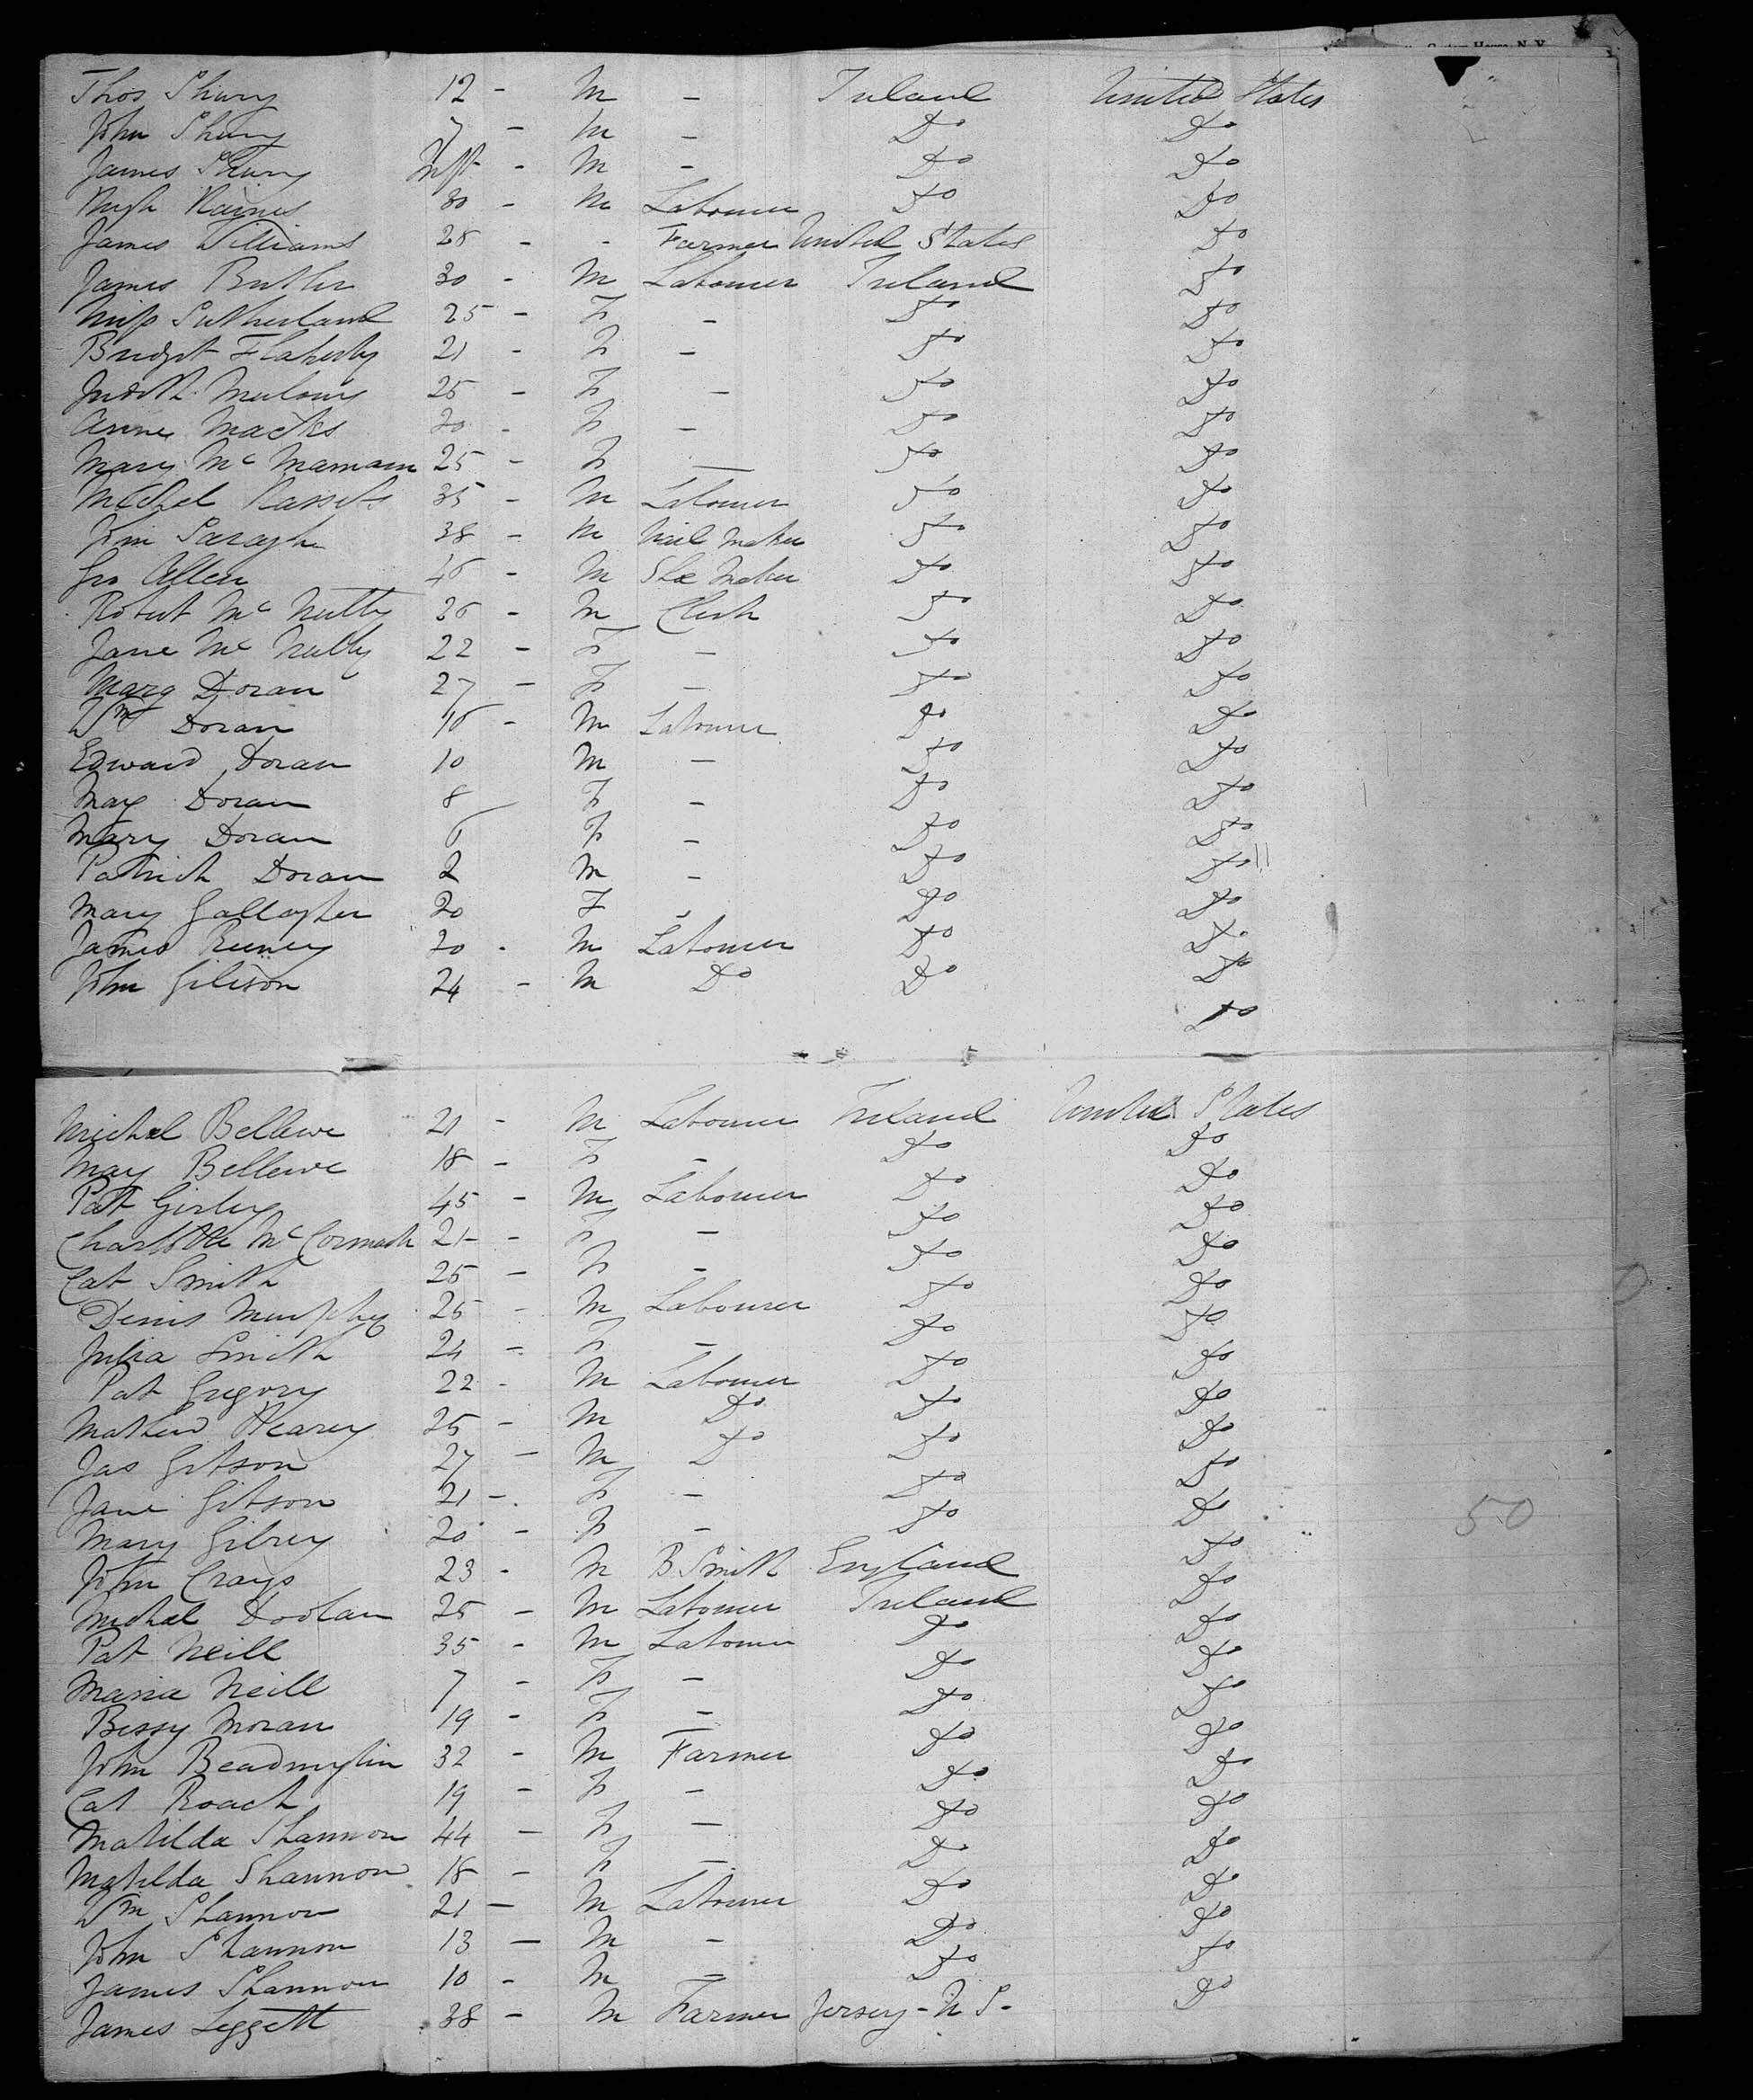 Custom House, N.Y.
Thos 12 - M - Ireland United States
John 7 - M - Do Do
James Inft - M - Do Do
Hugh 30 - M Labourer Do Do
James Williams 28 - - Farmer United States Do
James Butler 30 - M Labourer Ireland Do
Miss Sutherland 25 - F - Do Do
Bridget Flaherty 21 - F - Do Do
Judith 25 - F - Do Do
Anne Macks 20 - F - Do Do
Mary Mc 25 - F - Do Do
Michel 35 - M Labourer Do Do
38 - M Nail Maker Do Do
Allen - M Shoe Maker Do Do
Robert Mc Nulty 26 - M Clerk Do Do
Jane Mc Nulty 22 - F - Do Do
Marg Doran 27 - F - Do Do
Wm Doran 16 - M Labourer Do Do
Edward Doran 10 M - Do Do
May Doran 8 F - Do Do
Mary Doran 6 F - Do Do
Patrick Doran 2 M - Do Do
Mary Gallagher 20 F - Do Do
James 20 - M Labourer Do Do
John 24 - M Do Do Do
Do
Michel Bellewe 21 - M Labourer Ireland United States
May Bellewe 18 - F - Do Do
Patt 45 - M Labourer Do Do
Charlotte Mc Cormack 21 - F - Do Do
Cat Smith 25 - F - Do Do
Denis Murphy 25 - M Labourer Do Do
Julia Smith 24 - F - Do Do
Pat Gregory 22 - M Labourer Do Do
Mathew 25 - M Do Do Do
Jas Gibson 27 - M Do Do Do
Jane Gibson 21 - F - Do Do
Mary 20 - F - Do Do
John Craig 23 - M B Smith England Do
Michael Doolan 25 - M Labourer Ireland Do
Pat Neill 35 - M Labourer Do Do
Maria Neill 7 - F - Do Do
Bessy Moran 19 - F - Do Do
John 32 - M Farmer Do Do
Cat Roach 19 - F - Do Do
Matilda Shannon 44 - F - Do Do
Matilda Shannon 18 - F - Do Do
Wm Shannon 21 - M Labourer Do Do
John Shannon 13 - M - Do Do
James Shannon 10 - M - Do Do
James Leggett 38 - M Farmer Jersey - U S - Do
50